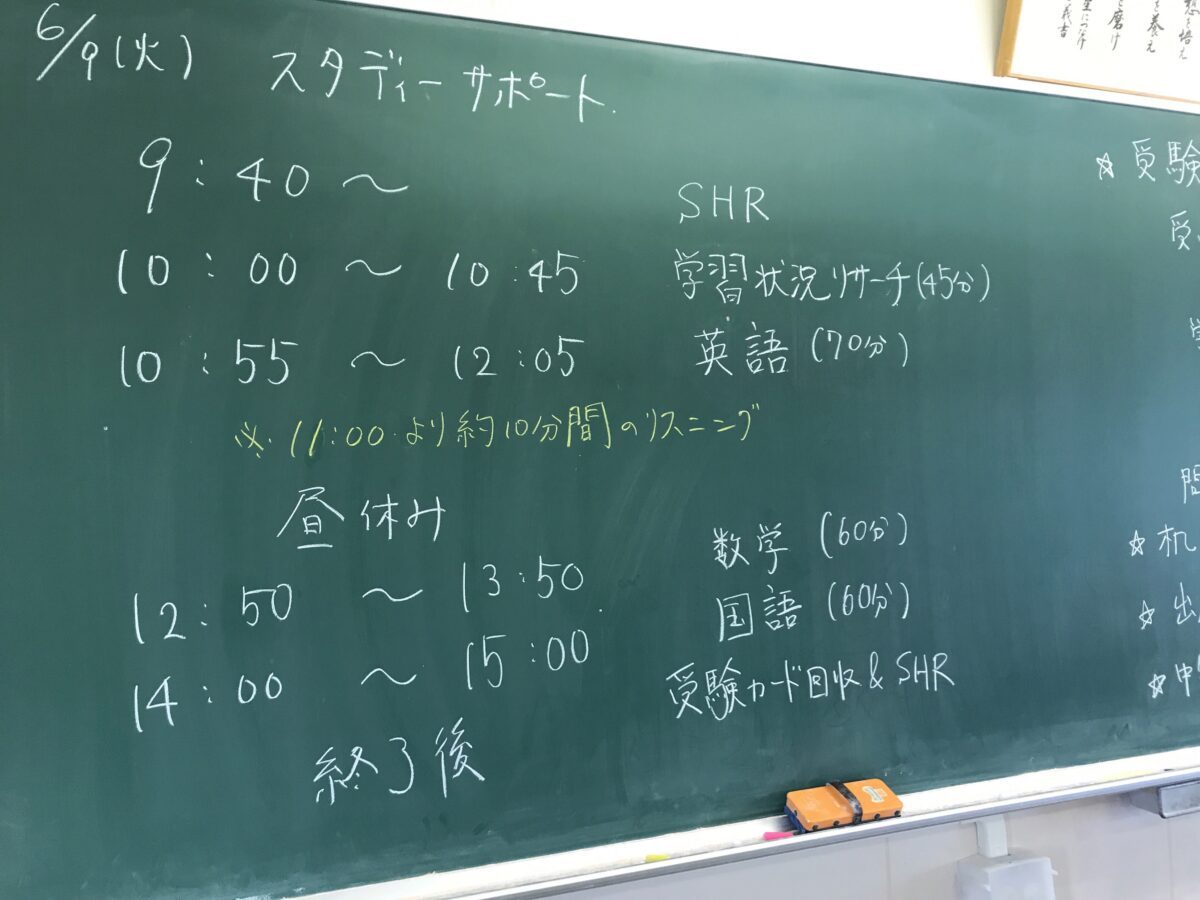 6/9(火) スタディーサポート
9:40〜 SHR
10:00〜10:45 学習状況リサーチ(45分)
10:55〜12:05 英語(70分)
※11:00より約10分間のリスニング
昼休み
12:50〜13:50 数学(60分)
14:00〜15:00 国語(60分)
終了後 受験カード回収&SHR
☆受験
受
学
問
☆机
☆出
☆中
を養え
磨け